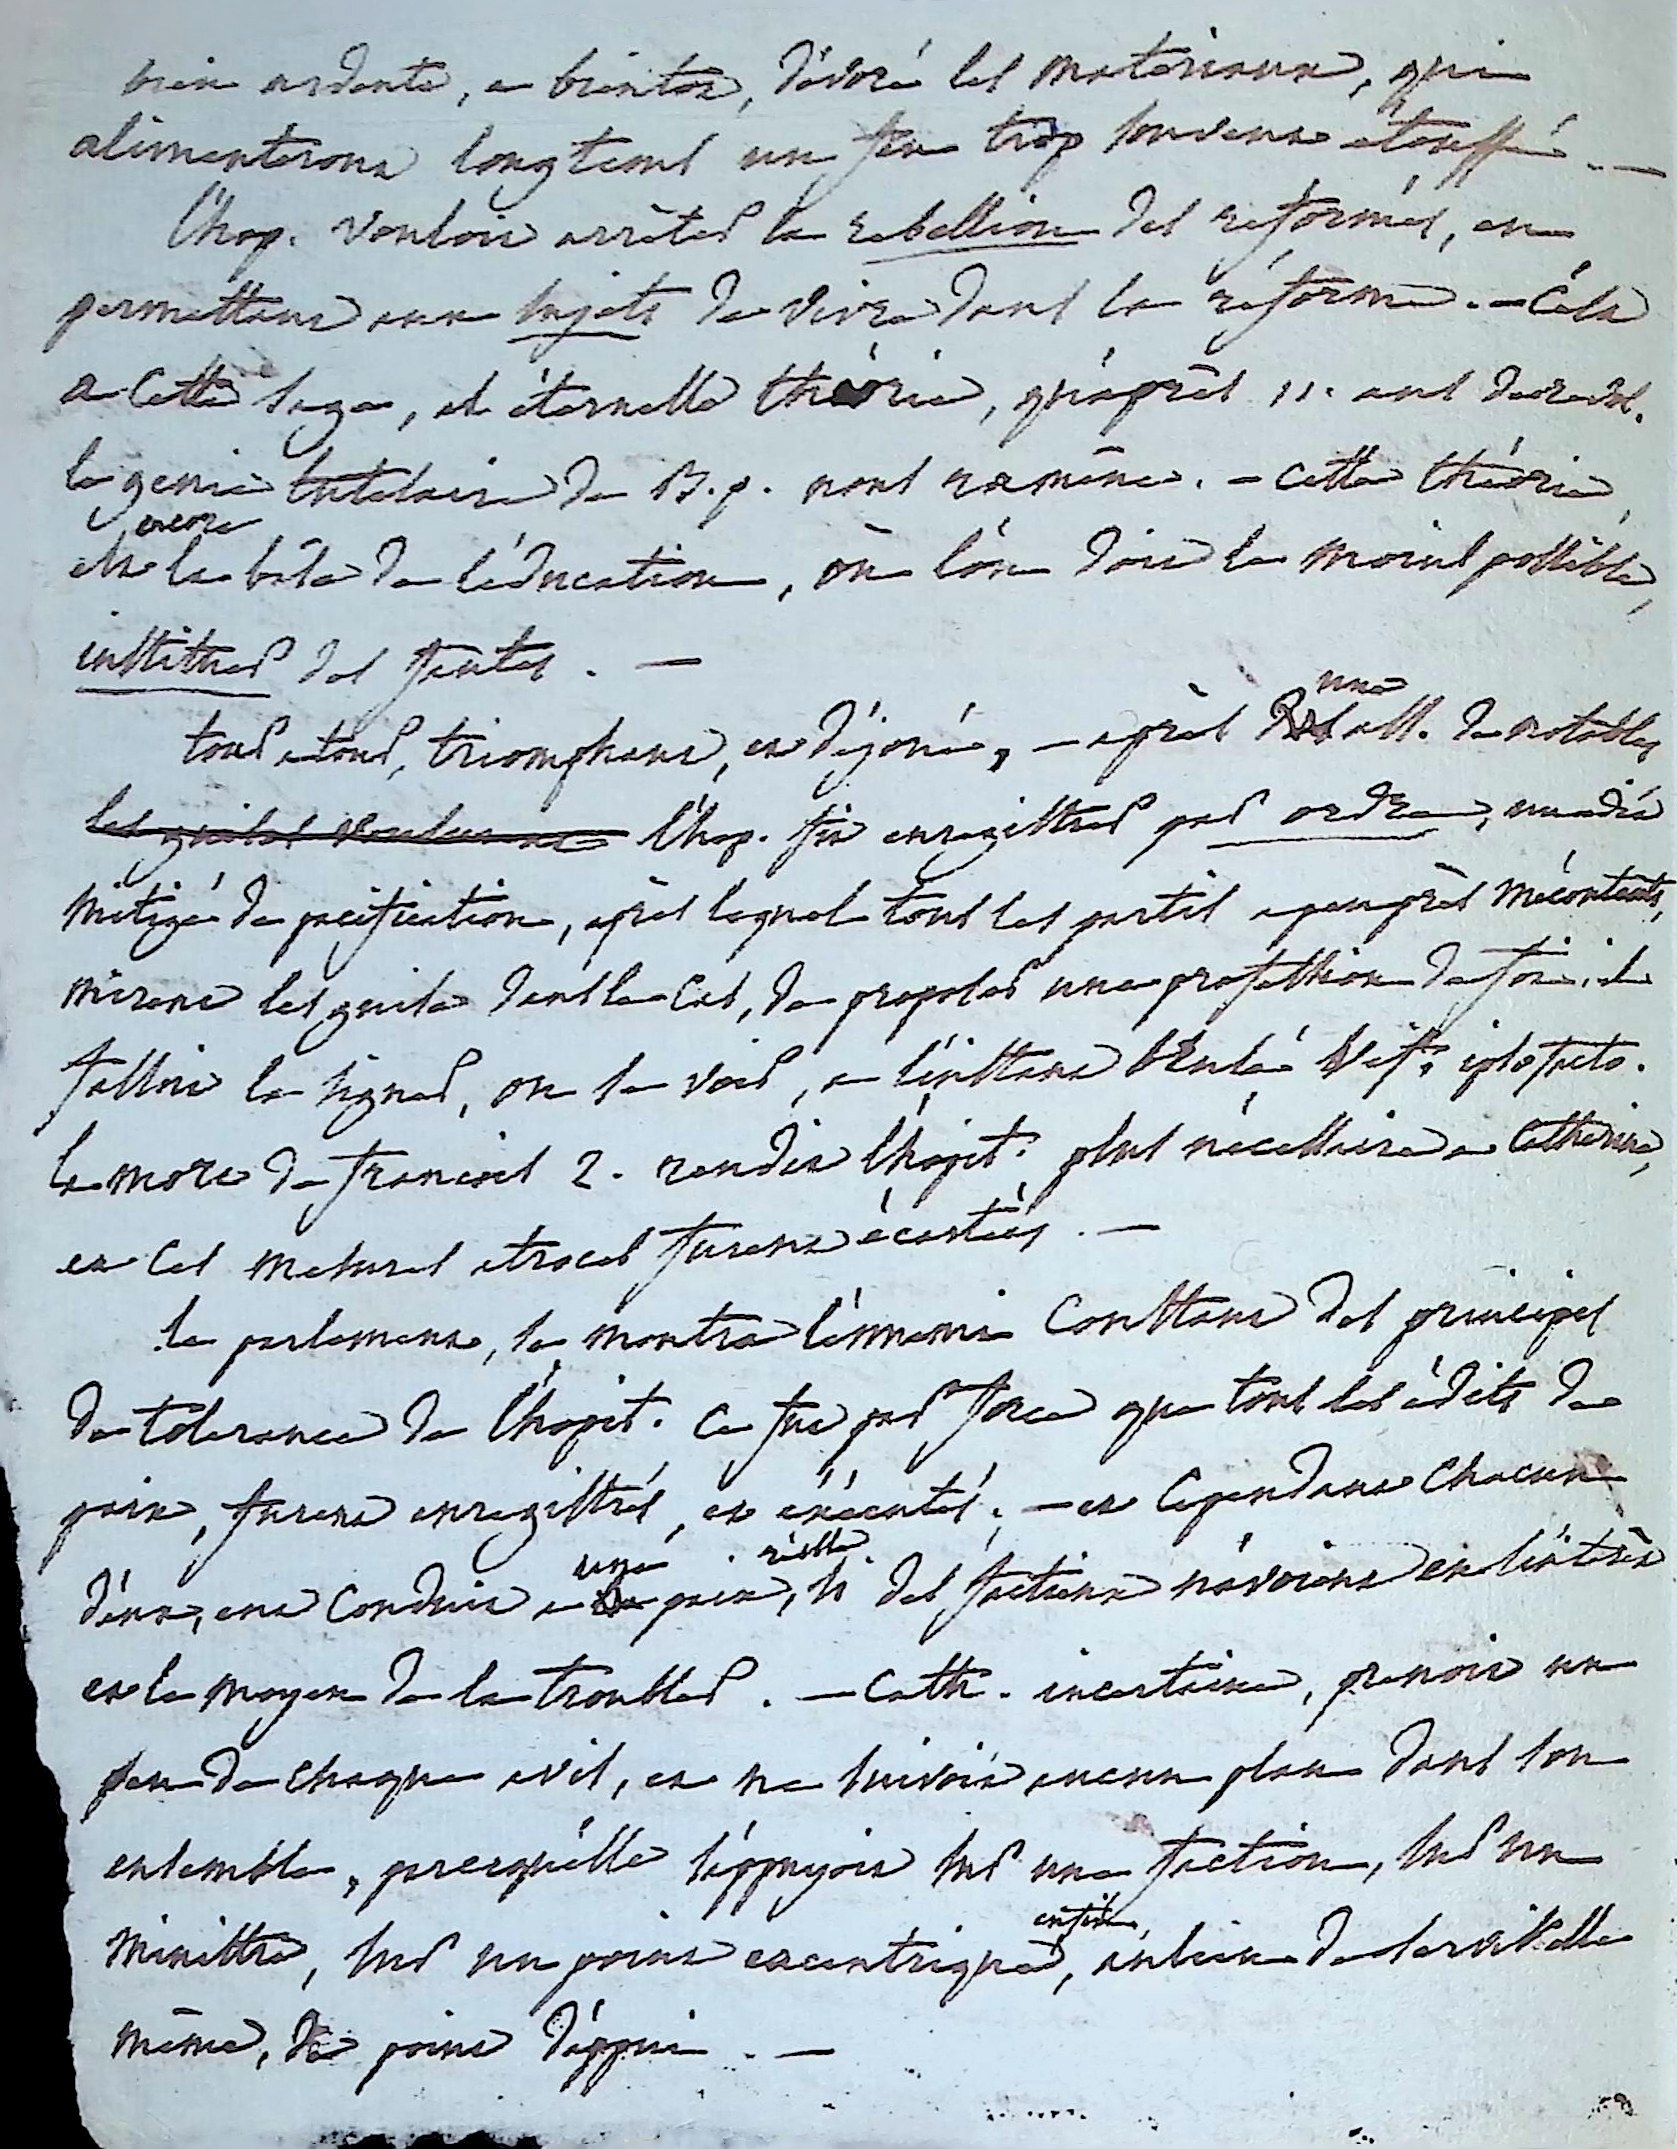 bien ardente, a bientot, dévoré les materiaux, qui
alimenteront longtems un feu trop souvent étouffé. —
l'hop. vouloit arrêter la rebellion des reformés, en
permettant aux sujets de vivre dans la réforme. — C'est
a cette sage, et éternelle théorie, qu'après 11. ans de revol.
le genie tutelaire de B.p. nous ramène. — cette théorie,
est encore la base de l'éducation, où l'on doit le moins possible,
instituer des fautes. —
tour a tour, triomphant, et déjoué, — après une ass. de notables
les guises voulurent l'hop. fit enregistrer par ordre, un édit
mitigé de pacification, après lequel tous les partis a peu près mécontents,
mirent les guises dans le cas, de proposer une profession de foi. il
falloit la signer, ou se voir, a l'instant brulé vif, ipso facto.
la mort de françois 2. rendit l'hopit. plus nécessaire a Catherine,
et ces mesures atroces furent écartées. —
le parlement, se montra l'ennemi constant des principes
de tolerance de l'hopit. ce fut par force que tous les édits de
paix, furent enregistrés, et éxécutés. — et cependant chacun
d'eux, eut conduit a une paix, réelle si des factions n'avoient eu l'intérêt
et le moyen de la troubler. — Cath. incertaine, prenoit un
peu de chaque avis, et ne suivoit aucun plan dans son
ensemble, parcequ'elle s'appuyoit sur une faction, sur un
ministre, sur un point excentrique, enfin, au lieu de servir elle
même, de point d'appui. —